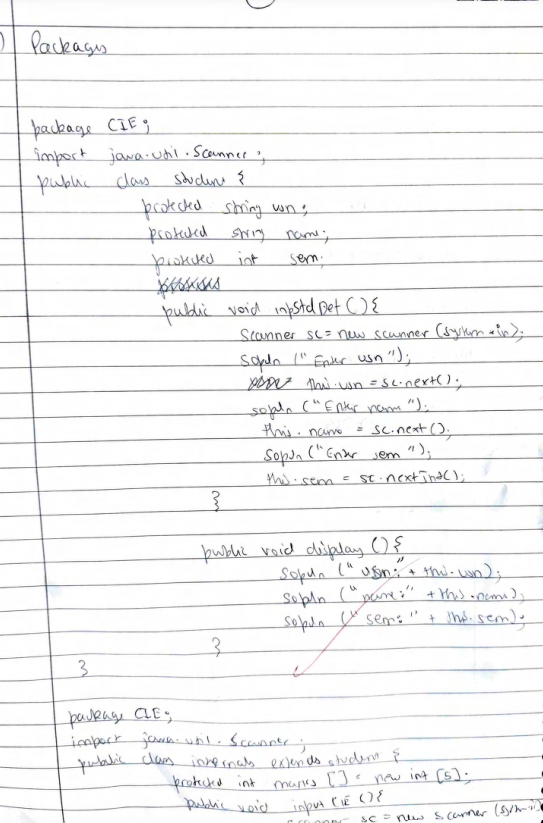 Packages
package CIE;
import java.util.Scanner;
public class Student {
protected string usn;
protected string name;
protected int sem;
public void inpStdDet () {
Scanner sc = new scanner (system.in);
sopln ("Enter usn");
this.usn = sc.next();
sopln ("Enter name");
this.name = sc.next();
sopln ("Enter sem");
this.sem = sc.nextint();
}
public void display () {
sopln ("usn:" + this.usn);
sopln ("name:" + this.name);
sopln ("sem:" + this.sem);
}
}
package CIE;
import java.util.Scanner;
public class internals extends student {
protected int marks [] = new int [5];
public void input CIE () {
scanner sc = new scanner (system.in)